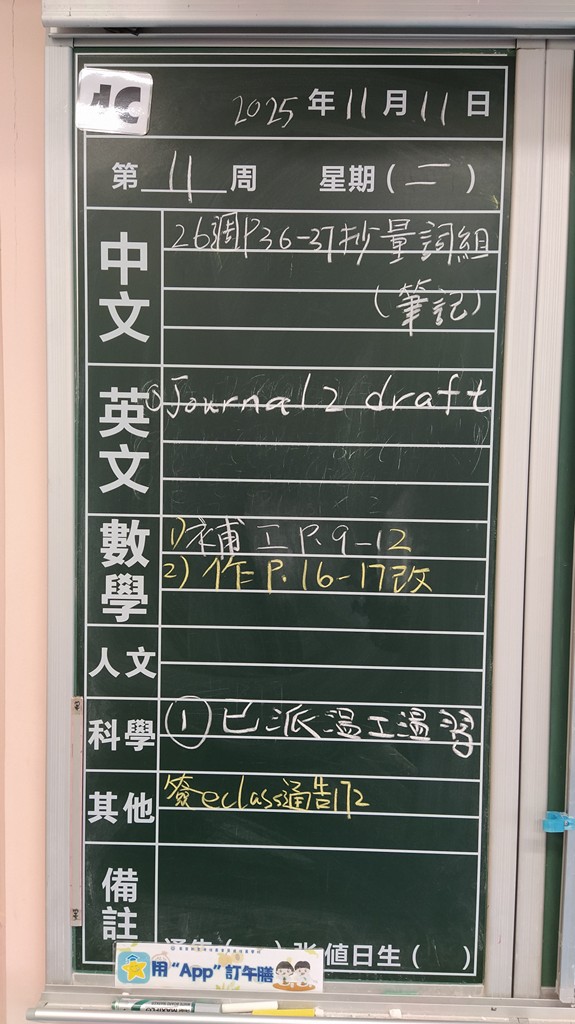 4C
2025年11月11日
第11周 星期(二)
中文
26週P36-37抄量詞組
(筆記)
英文
①Journal 2 draft
數學
1)補工P.9-12
2)作P.16-17改
人文
科學
①已派溫工溫習
其他
簽eclass通告172
備註
值日生( )
用“App”訂午膳